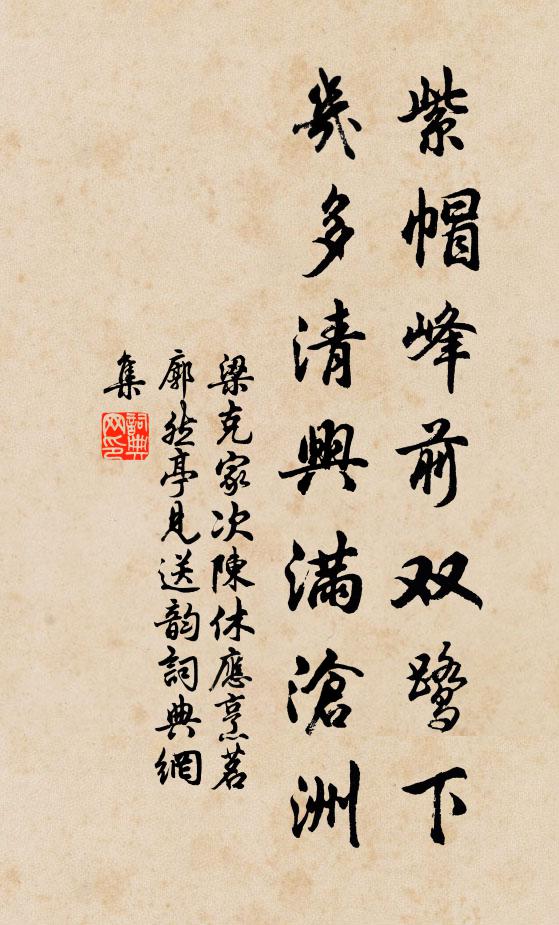 紫帽峰前双鹭下
幾多清興滿滄洲
梁克家次陳休應烹茗
廓然亭見送韵詞典網
集
詞典
网印